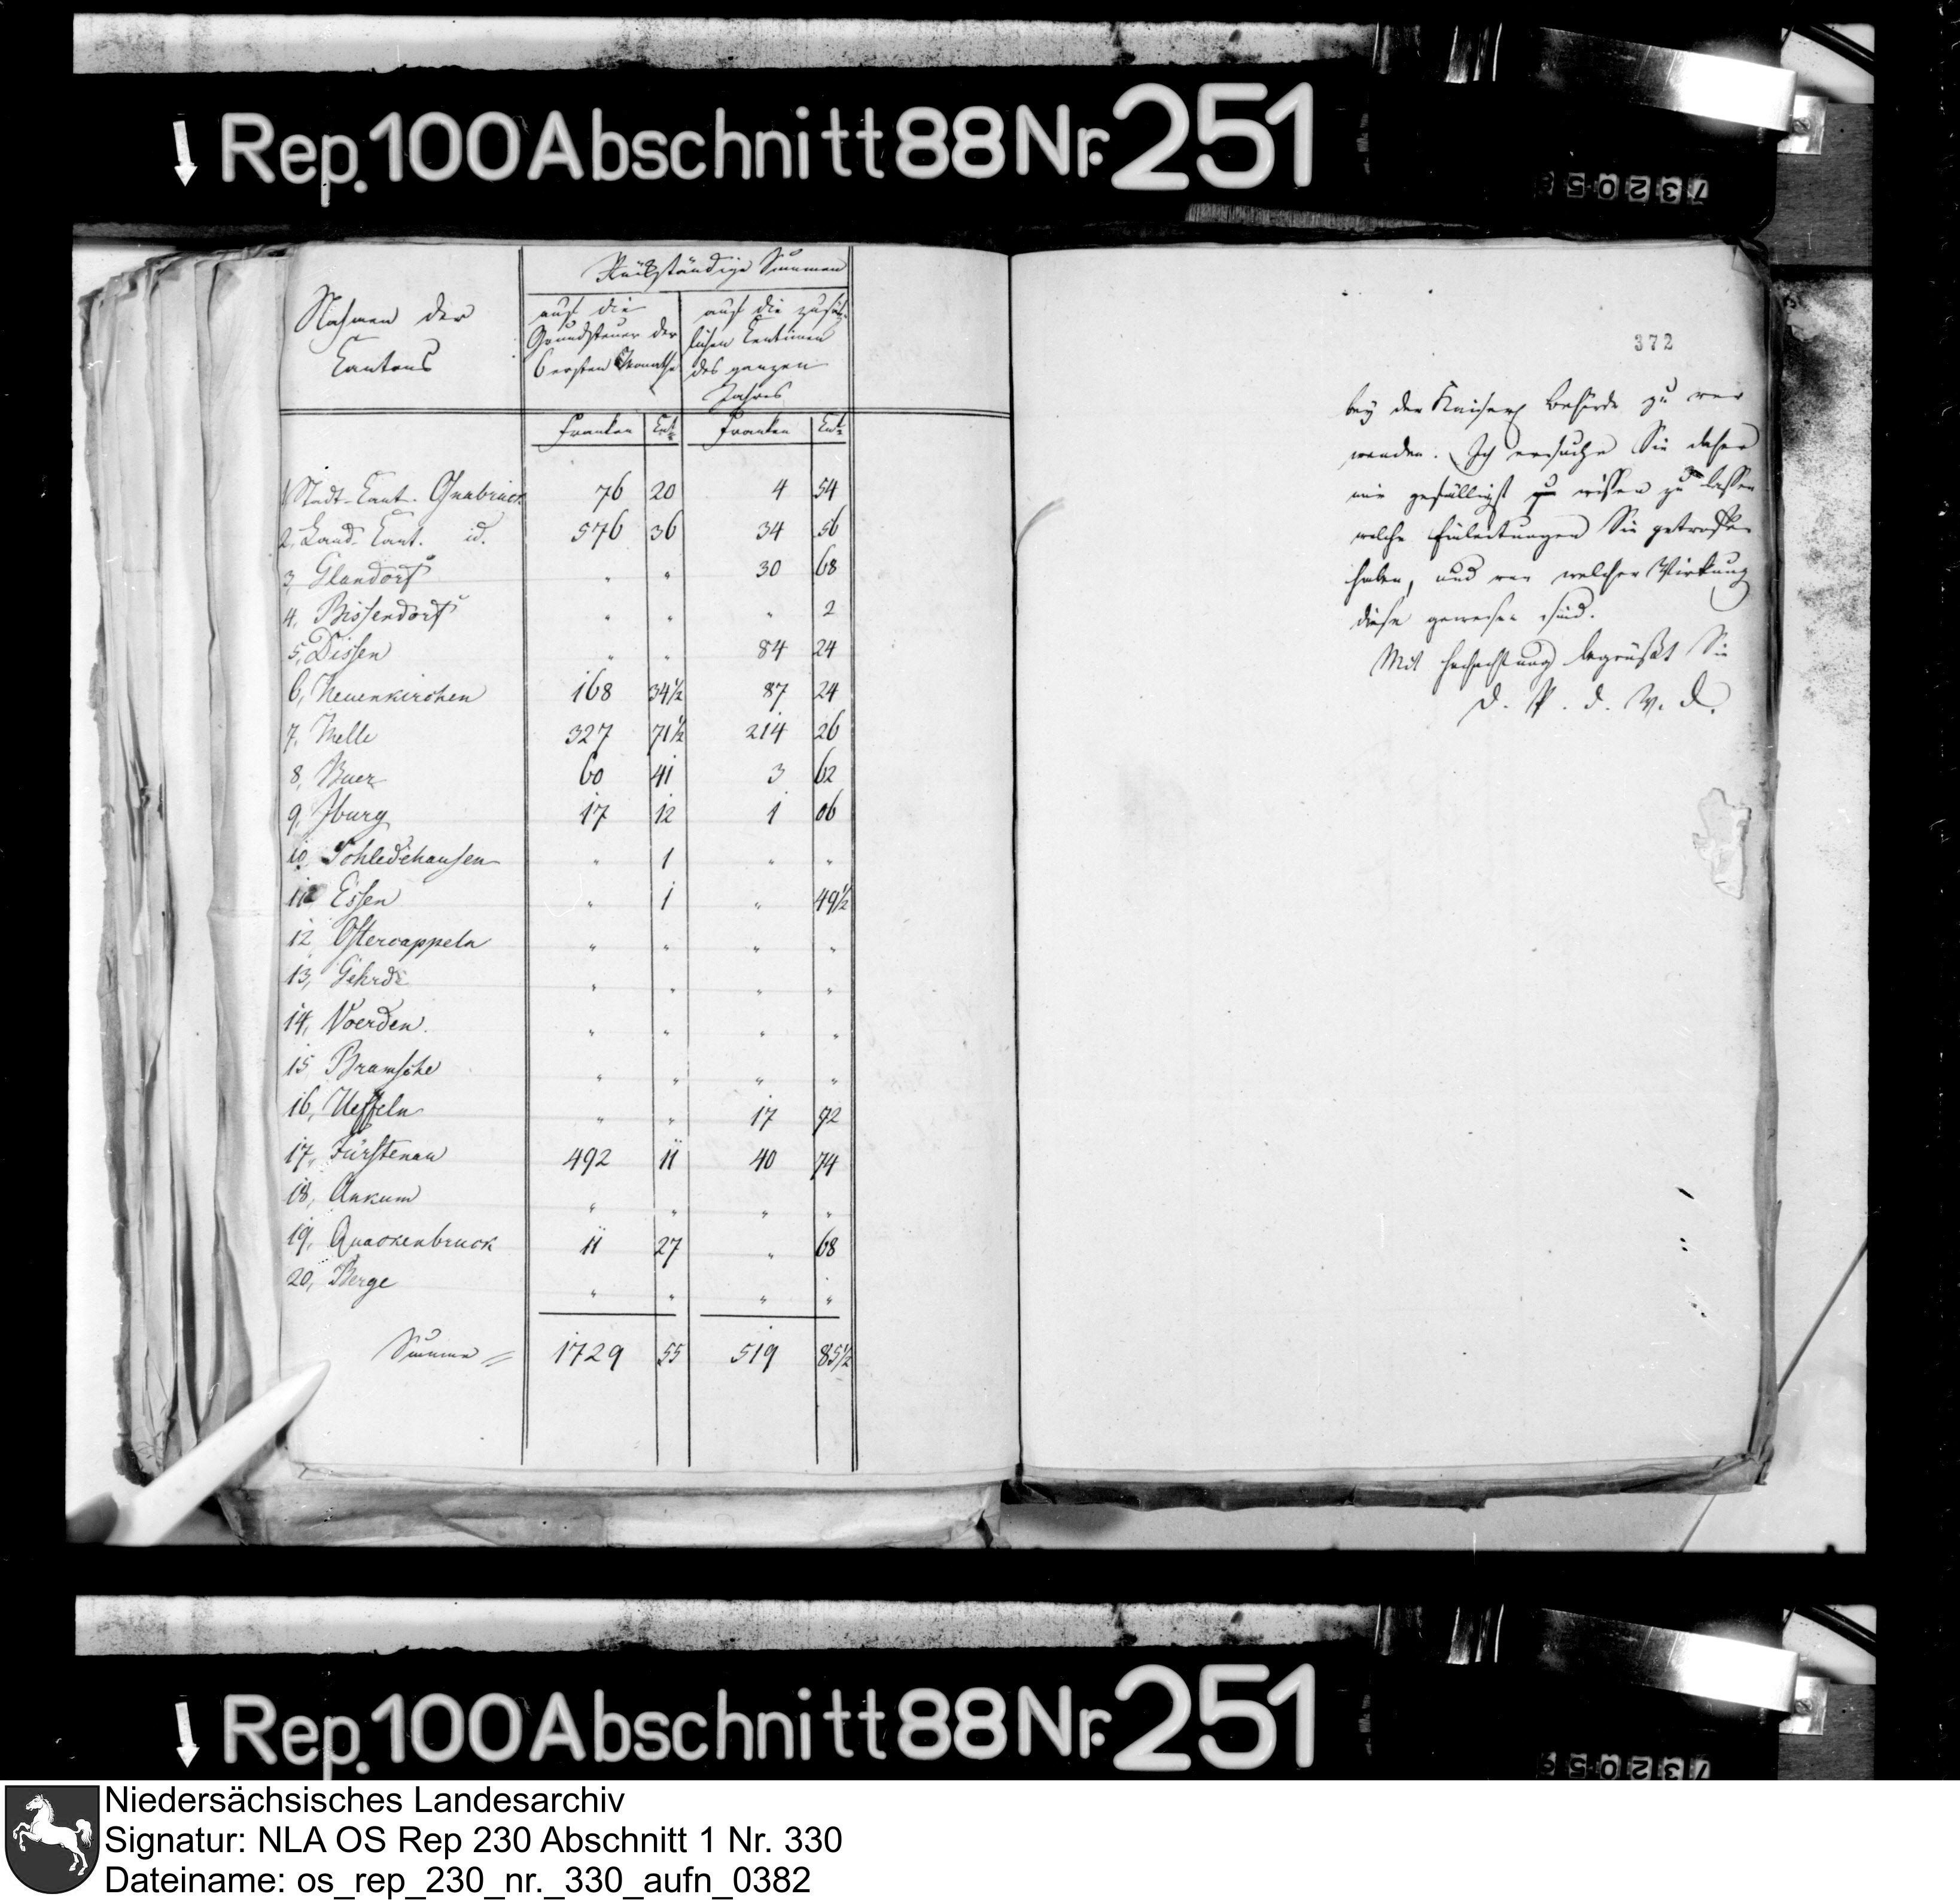 Rep. 100 Abschnitt 88 Nr. 251
732059
Nahmen der Cantons
Rückständige Summen
auf die Grundsteuer der 6 ersten Monathe
auf die zusätzlichen Centimen des ganzen Jahres
Franken Cent. Franken Cent.
1 Stadt-Cant. Osnabrück 76 20 4 54
2, Land-Cant. id. 576 36 34 56
3, Glandorf " " 30 68
4, Bissendorf " " " 2
5, Dissen " " 84 24
6, Neuenkirchen 168 34½ 87 24
7, Melle 327 71½ 214 26
8, Buer 60 41 3 62
9, Iburg 17 12 1 06
10, Schledehausen " 1 " "
11 Essen " 1 " 49½
12, Ostercappeln " " " "
13, Gehrde " " " "
14, Voerden. " " " "
15 Bramsche " " " "
16, Ueffeln " " 17 92
17, Fürstenau 492 11 40 74
18, Ankum " " " "
19, Quackenbruck 11 27 " 68
20, Berge " " " "
Summa = 1729 55 519 85½
372
bey der Kaiserl Behörde zu ver
wenden. Ich ersuche Sie daher
mir gefälligst zu wissen zu lassen
welche Einleitungen Sie getroffen
haben, und von welcher Wirkung
diese gewesen sind.
Mit Hochachtung begrüßt Sie
D. P. d. W. D.
Rep. 100 Abschnitt 88 Nr. 251
732059
Niedersächsisches Landesarchiv
Signatur: NLA OS Rep 230 Abschnitt 1 Nr. 330
Dateiname: os_rep_230_nr._330_aufn_0382